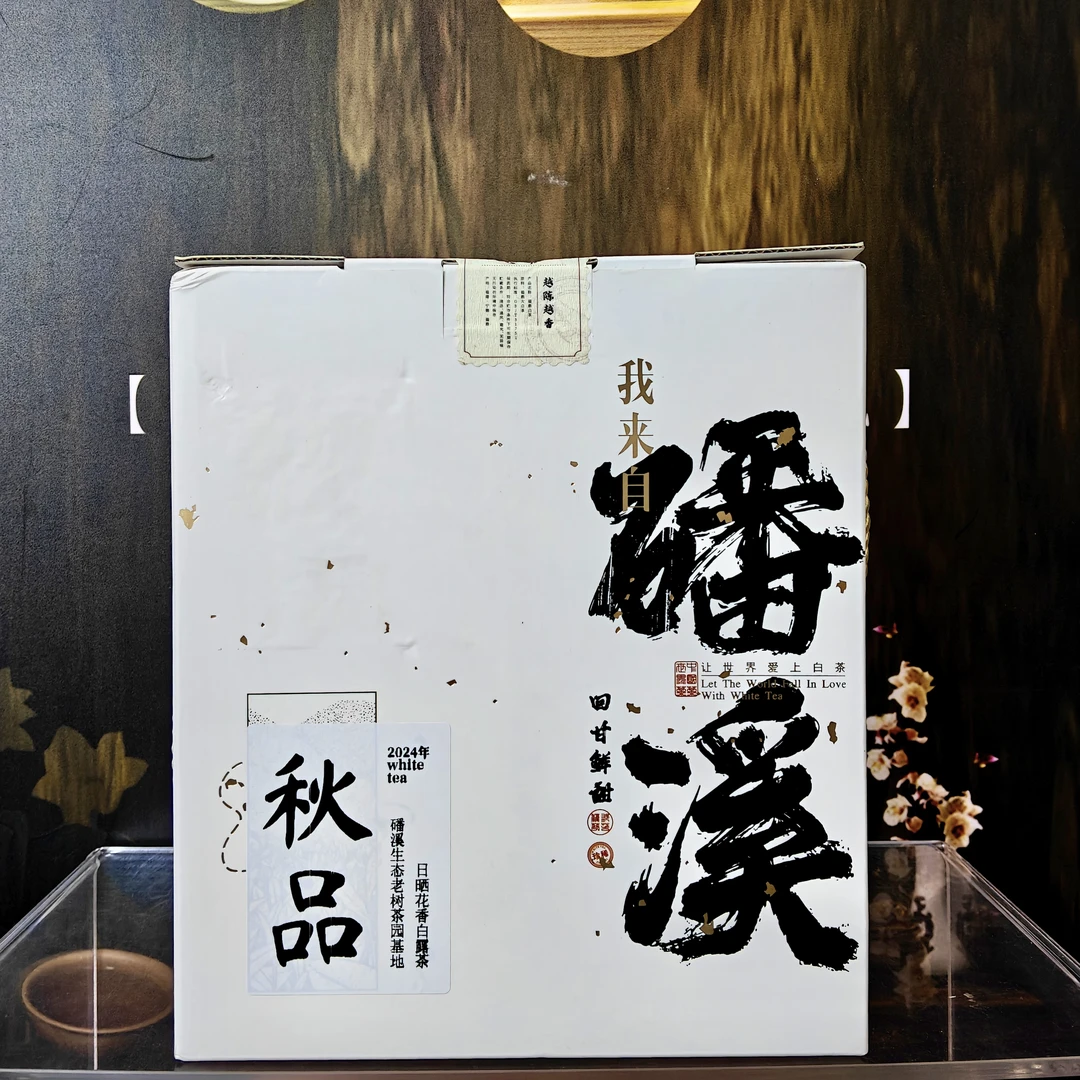 越陈越香
我来自
磻溪
让世界爱上白茶
Let The World Fall In Love
With White Tea
回甘鲜甜
秋品
2024年
white
tea
日晒花香白露茶
磻溪生态老树茶园基地
【
】